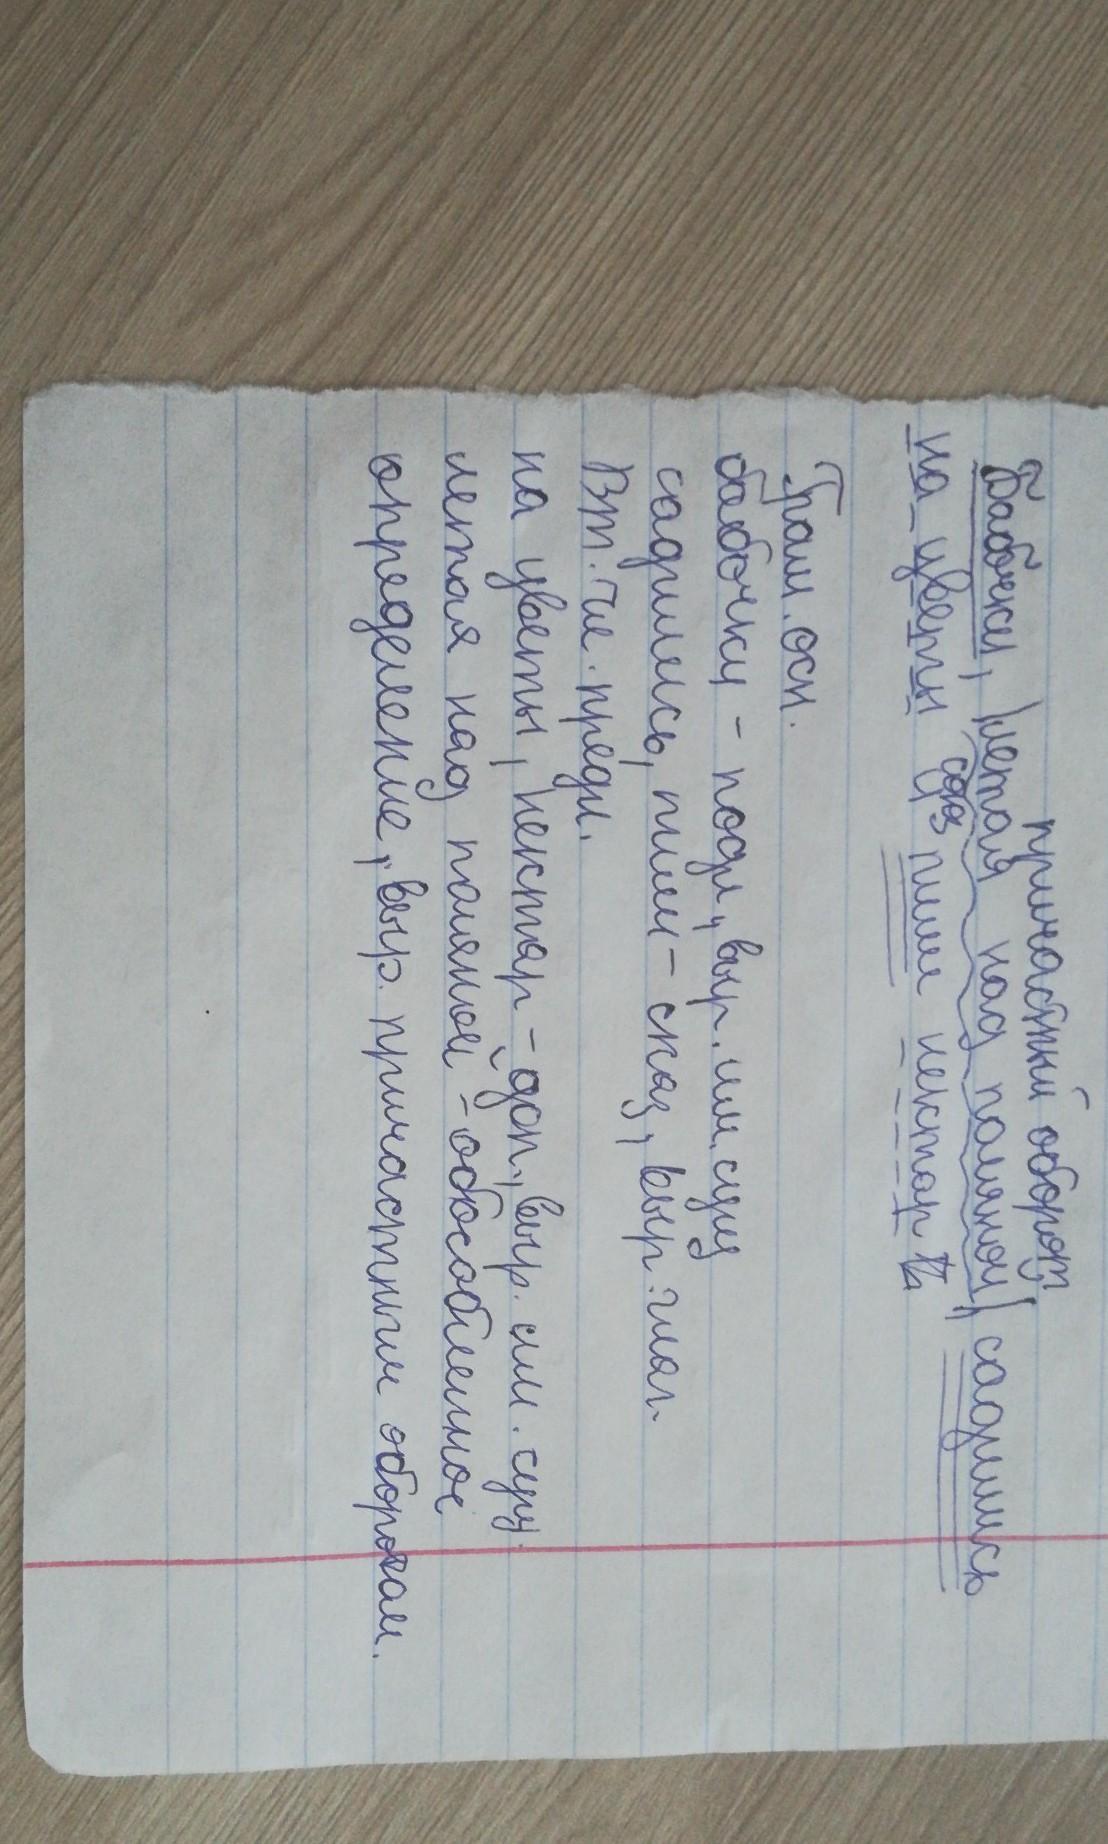 причастный оборот
Бабочки, |летая над поляной|, садились
на цветы и пили нектар
соз
Грам. осн.
бабочки - подл., выр. им. сущ
садились, пили - сказ, выр. глаг.
Вт. чл. предл.
на цветы, нектар - доп., выр. им. сущ.
летая над поляной - обособленное
определение, выр. причастным оборотом.